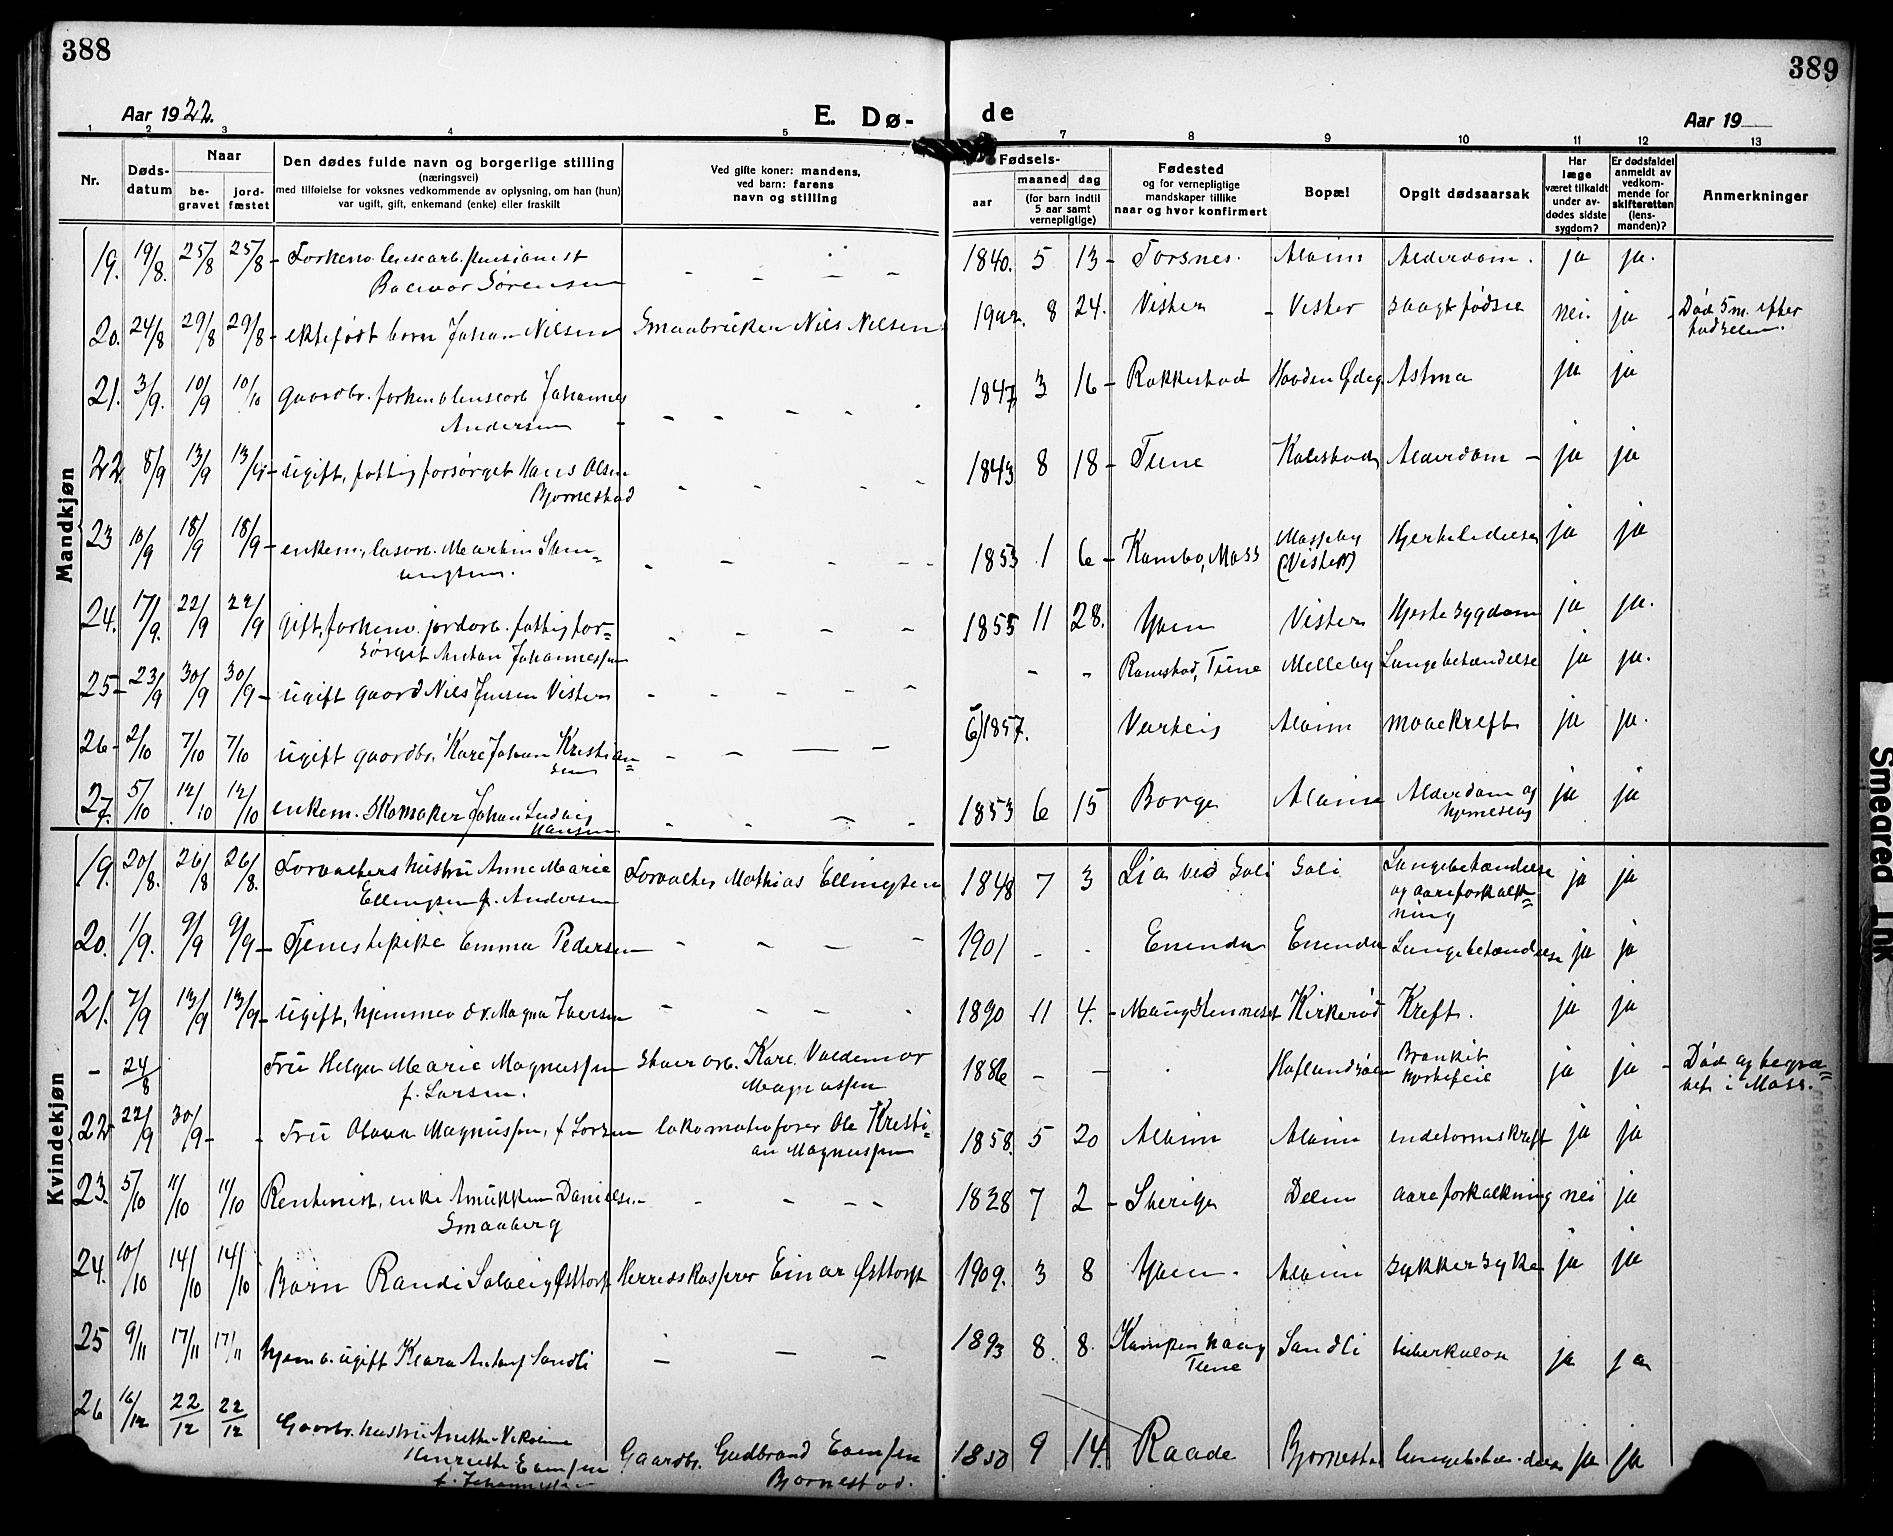 388
389
Aar 1922.
E. Dø-
de
Aar 19
1 2 3 4 5 7 8 9 10 11 12 13
Nr.
Døds-
datum
Naar
be-
gravet
jord-
fæstet
Den dødes fulde navn og borgerlige stilling
(næringsvei)
med tilføielse for voksnes vedkommende av oplysning, om han (hun)
var ugift, gift, enkemand (enke) eller fraskilt
Ved gifte koner: mandens,
ved barn: farens
navn og stilling
Fødsels-
aar
maaned dag
(for barn indtil
5 aar samt
vernepligtige)
Fødested
og for vernepligtige
mandskaper tillike
naar og hvor konfirmert
Bopæl
Opgit dødsaarsak
Har
læge
været tilkaldt
under av-
dødes sidste
sygdom?
Er dødsfaldet
anmeldt av
vedkom-
mende for
skifteretten
(lens-
manden)?
Anmerkninger
Mandkjøn
19. 19/8. 25/8 25/8 - 1840. 5 13 - Torsnes. Alvim Alderdom. ja ja.
Sørensen
20. 24/8 29/8 29/8 - ektefødt barn Johan Nilsen Smaabruker Nils Nilsen 8 24. Vister - Vister nei. ja - Død 5 m. efter
fødselen.
21. 3/9. 10/9 10/10 gaardbr. Johannes 1847 3 16 - Rakkestad Astma ja ja
Andersen
22. 8/9 13/9 - ugift, fattigforsørget Hans Olsen 1843 8 18 - Tune Alderdom - ja ja
Bjørnestad
23 10/9 18/9 18/9 - enkem., Martin Sam- 1853 1 6 - Kambo, Moss Masseby Hjertelidelse ja ja
uelsen. (Vister)
24. 17/9. 22/9 22/9 gift, forhenv. jordarb. fattigfor- 1855 11 28. Yven Vister Hjertesygdom ja ja.
sørget Anton Johannessen
25 - 23/9 30/9 30/9 - ugift gaard Nils Jensen Vister Ramstad, Tune Melleby Lungebetændelse ja ja.
26 - 2/10 7/10 7/10 ugift gaardbr. Karl Johan Kristian= 1857. Varteig Alvim mavekreft ja ja.
sen
27. 5/10 12/10 12/10 enkem. Skomaker Johan Ludvig 1853 6 15 Borge Alvim Alderdom og ja ja
Hansen hjerneslag
Kvindekjøn
19. 20/8. 26/8 26/8. Forvalters hustru Anne Marie Forvalter Mathias Ellingsen 1848 7 3 Lia ved Soli Soli Lungebetændelse ja ja
Ellingsen f. Andersen og aareforkalk=
ning
20. 1/9. 9/9 9/9 - Tjenestepike Emma Pedersen 1901 - - Enenda Enenda Lungebetændelse ja ja
21. 7/9 13/9 13/9 - ugift, hjemmev. Magna Iversen 1890 11 4. - Kirkerød Kreft. ja ja
- 24/8 Fru Helga Marie Magnussen Karl Valdemar 1886 - - Haflundsøen Bronkit ja ja - Død og begra=
f. Larsen. Magnussen hjertefeil vet i Moss.
22 22/9 30/9 - - Fru Olava Magnussen, f Larsen lokomotivfører Ole Kristi- 1858. 5 20 Alvim Alvim endetarmskreft ja ja
an Magnussen
23. 5/10 11/10 11/10 enke Danielsen - 1838 7 2 - Sverige Delen aareforkalkning nei ja
Smaaberg
24. 10/10 14/10 14/10 Barn Randi Solveig Østtorp Herredskasserer Einar Østtorp 1909. 3 8 Yven. Alvim sukkersyke ja ja
25 9/11 17/11 17/11 hjemv. ugift Klara Sandli 1893 8 8. Sandli tuberkulose ja ja
Tune
26 16/12 22/12 22/12 Gaardbr. hustru Anette Nikoline
Henriette Evensen Gaardbr. Gudbrand Evensen 1850 9 14. Raade Bjørnestad lungebetændelse ja ja
f. Johannessen Bjørnestad.
Smeared Ink